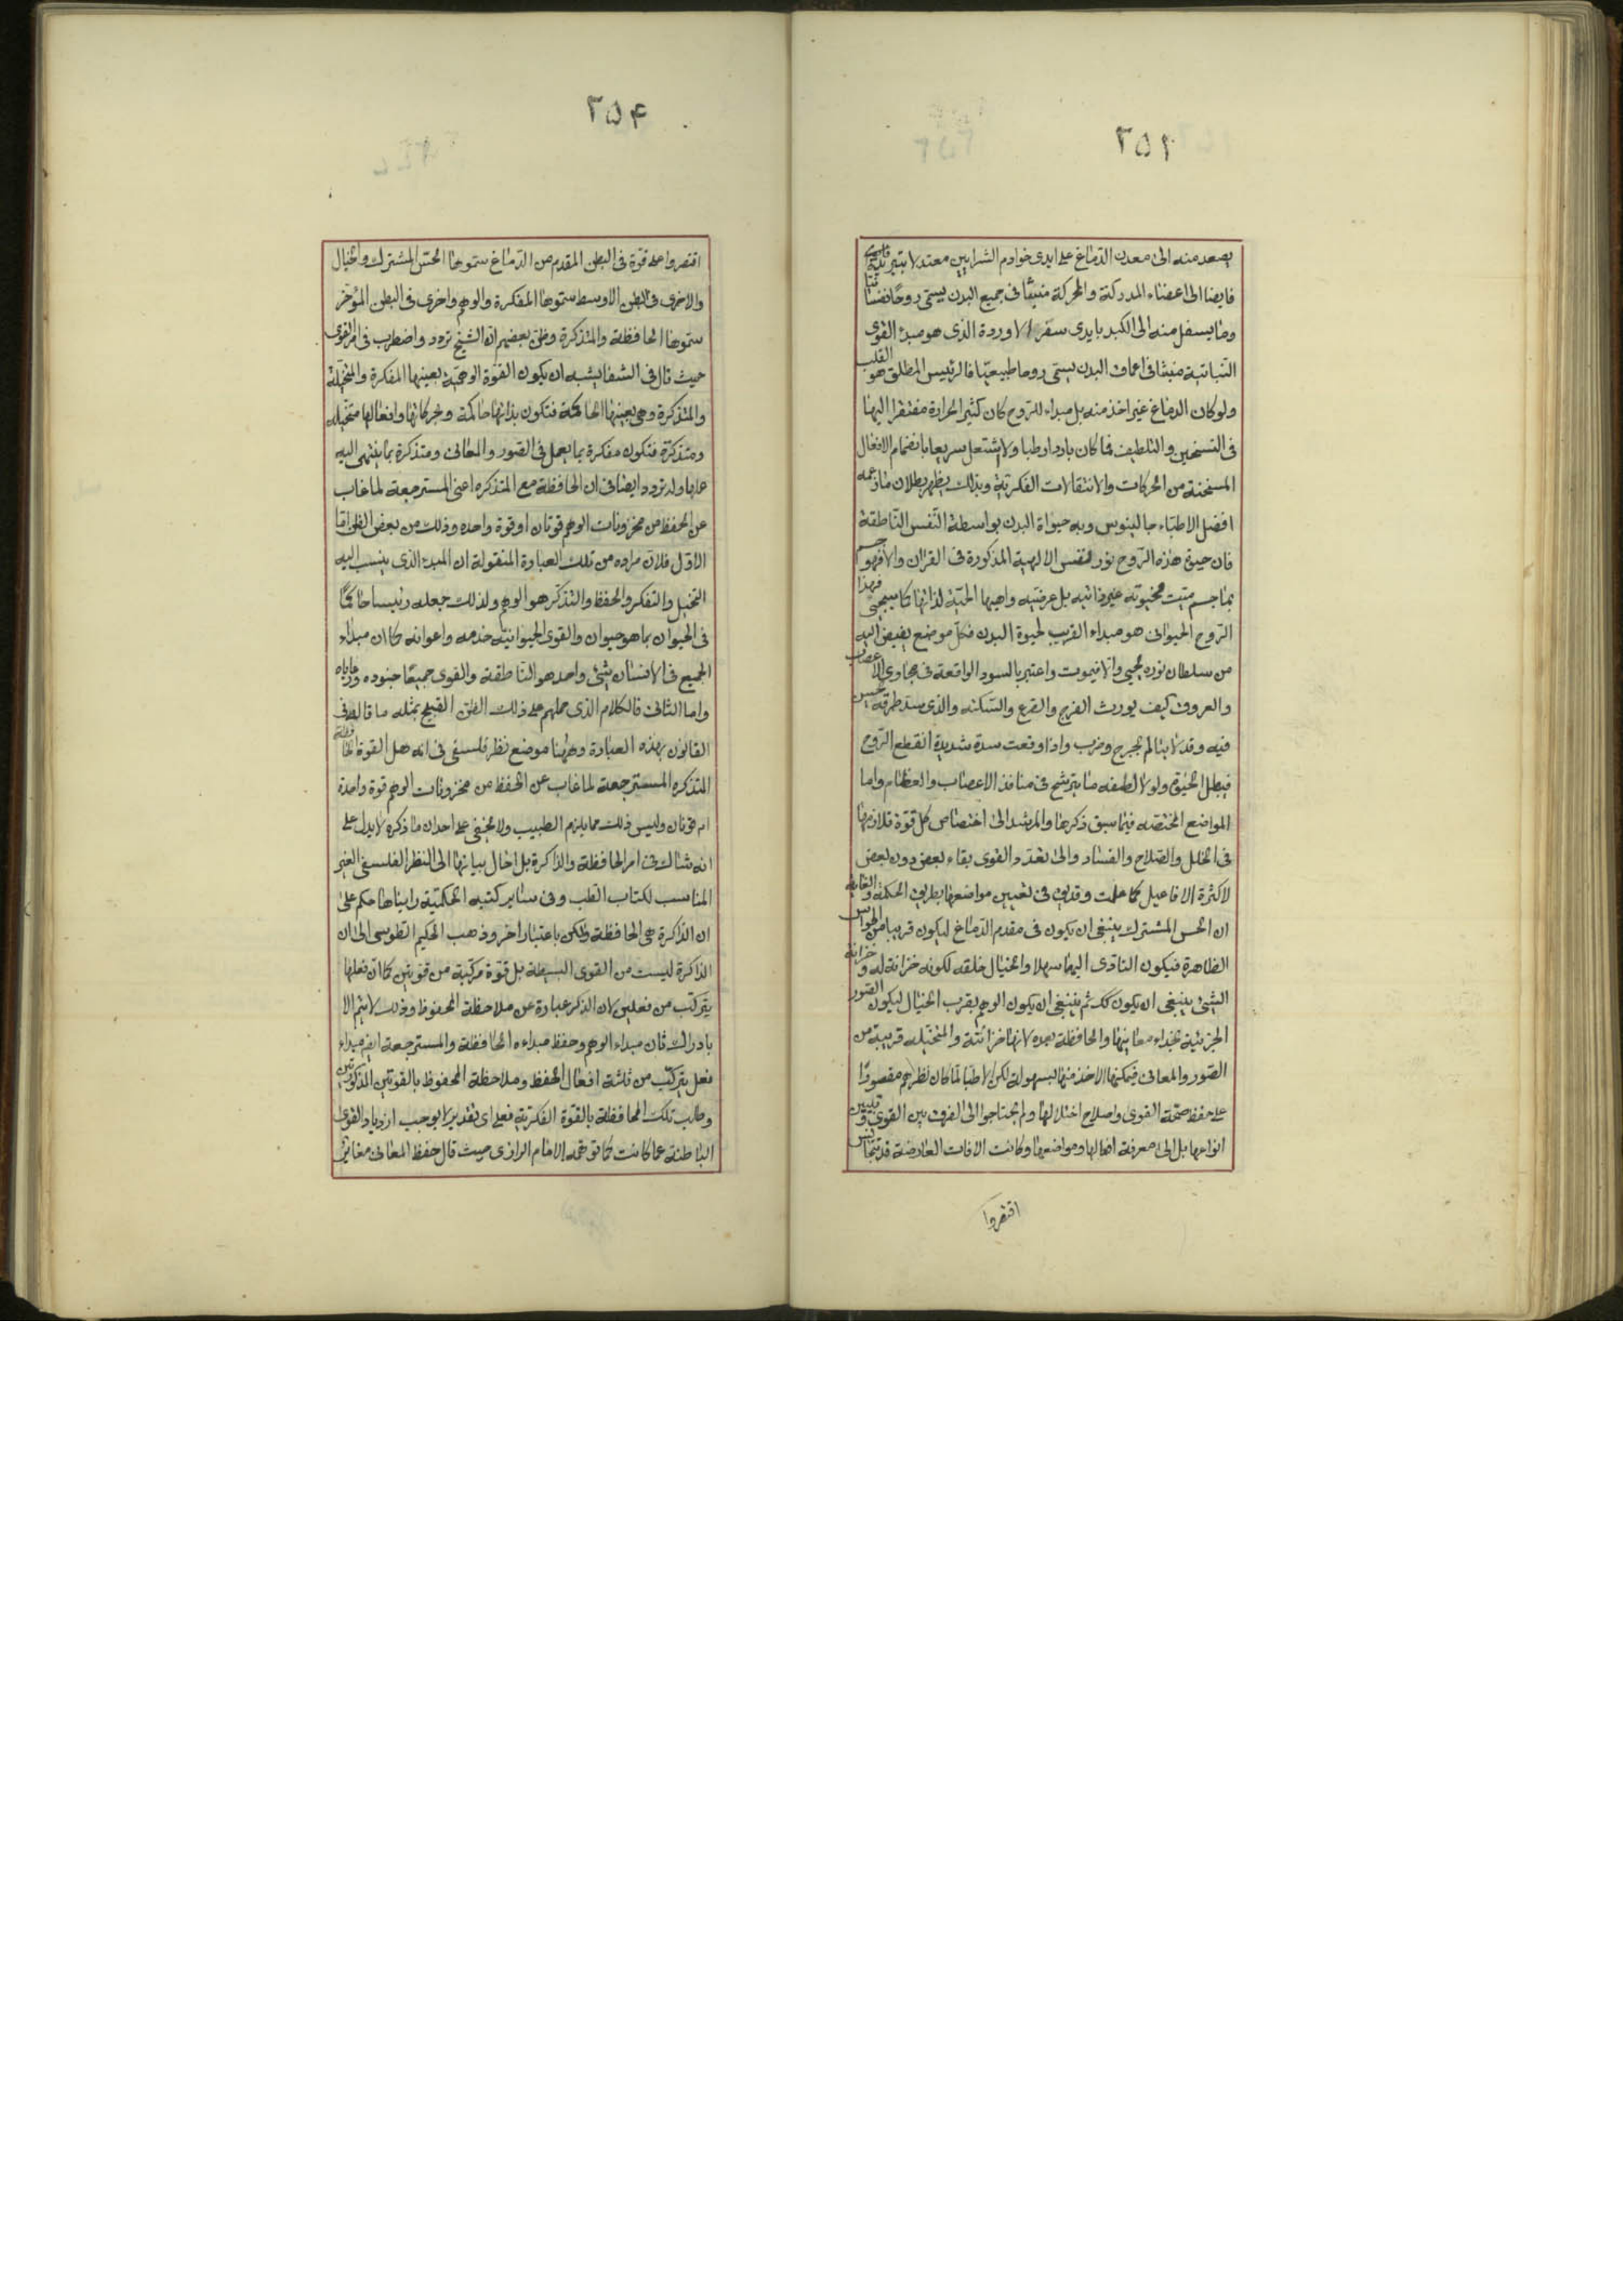 ٢٥٢
يصعد منه الى معدن الدماغ على ايدى خوادم الشرايين معتدلا بتبريده
فايضا الى اعضاء المدركة والمحركة منبثا فى جميع البدن يسمى روحا نفسانيا
وما يسفل منه الى الكبد بايدى سفراء الاوردة الذى هو مبدء القوى
النباتية منبثا فى اعماق البدن يسمى روحا طبيعيا فالرئيس المطلق هو القلب
ولو كان الدماغ غير اخذ منه بل مبداء للروح كان كثير الحرارة مفتقرا اليها
فى التسخين والتلطيف فما كان باردا رطبا ولا يشتعل سريعا بانضمام الافعال
المسخنة من الحركات والانتقالات الفكرية وبذلك يظهر بطلان ما زعمه
افضل الاطباء جالينوس وبه حيواة البدن بواسطة النفس الناطقة
فان حيوة هذه الروح نور لنفس الالهية المذكورة فى القران والا فهو جسم
بما جسم ميت فحيوته غير ذاتية بل عرضية واهبها الحية لذاتها كما سيجئ فهذا
الروح الحيوانى هو مبداء القريب لحيوة البدن فكل موضع يفيض اليه
من سلطان نوره يحيى والا فيموت واعتبر بالسدد الواقعة فى مجارى الاعصاب
والعروق كيف يورث الفرج والقرع والسكته والذى سد طرقه
فيه وقد لا يتالم بجرح وضرب واذا وقعت سدة شديدة انقطع الروح
فيبطل الحيوة ولولا لطيفه ما يترشح فى منافذ الاعصاب والعظام واما
المواضع المختصه فيما سبق ذكرها والمرشد الى اختصاص كل قوة تلازمها
فى الخلل والصلاح والفساد والى تعدد القوى بقاء بعض دون بعض
لا كثرة الافاعيل كما علمت وقد بقى فى تعيين مواضعها بطريق الحكمة والغاية
ان الحس المشترك ينبغى ان يكون فى مقدم الدماغ ليكون قريبا من الحواس
الظاهرة فيكون التادى اليها سهلا والخيال خلفه لكونه خزانة له وخزانة
الشئ ينبغى ان يكون كك ثم ينبغى ان يكون الوهم بقرب الخيال ليكون الصور
الجزئية بحذاء معانيها والحافظة بعده لانها خزانته والمتخيله قريبة من
الصور والمعانى فيمكنها الاخذ منها بسهولة لكن الاطبا لما كان نظرهم مقصورا
على حفظ صحة القوى واصلاح اختلالها ولم يحتاجوا الى الفرق بين القوى وتبيين
انواعها بل الى معرفة افعالها ومواضعها وكانت الافات العارضة قد تتجانس
اقتصروا
٢٥۴
اقتصروا على قوة فى البطن المقدم من الدماغ سموها الحس المشترك والخيال
والاخرى فى البطن الاوسط سموها المفكرة والوهم واخرى فى البطن المؤخر
سموها الحافظة والمتذكرة وظن بعضهم ان الشيخ تردد واضطرب فى امر القوى
حيث قال فى الشفا يشبه ان يكون القوة الوهمية بعينها المفكرة والمتخيلة
والمتذكرة وهى بعينها الحاكمة فتكون بذاتها حاكمة وبحركاتها وافعالها متخيله
ومتذكرة فتكون مفكرة بما يعمل فى الصور والمعانى ومتذكرة بما ينتهى اليه
عملها وله تردد ايضا فى ان الحافظة مع المتذكره اعنى المسترجعة لما غاب
عن الحفظ من مخزونات الوهم قوتان او قوة واحده وذلك من بعض الظن اما
الاول فلان مراده من تلك العبارة المنقولة ان المبدء الذى ينسب اليه
التخيل والتفكر والحفظ والتذكر هو الوهم ولذلك جعله رئيسا حاكما
فى الحيوان بما هو حيوان والقوى الحيوانية خدمه واعوانه كما ان مبداء
الجميع فى الانسان شئ واحد هو الناطقة والقوى جميعا جنوده ورعاياه
واما الثانى فالكلام الذى حملهم على ذلك الظن القبيح بمثله ما قاله فى
القانون بهذه العبارة وههنا موضع نظر فلسفى فى انه هل القوة الحافظة
المتذكره المسترجعة لما غاب عن الحفظ من مخزونات الوهم قوة واحدة
ام قوتان وليس ذلك مما يلزم الطبيب ولا يخفى على احد ان ما ذكره لا يدل على
انه شاك فى امر الحافظة والذاكرة بل احال بيانها الى النظر الفلسفى الغير
المناسب لكتاب الطب وفى سائر كتبه الحكمية رايناها حكم على
ان الذاكرة هى الحافظة ولكن باعتبار اخر وذهب الحكيم الطوسى الى ان
الذاكرة ليست من القوى البسيطة بل قوة مركبة من قوتين كما ان فعلها
يتركب من فعلين لان الذكر عبارة عن ملاحظة المحفوظ وذلك لا يتم الا
بادراك فان مبداء الوهم وحفظ مبداءه الحافظة والمسترجعة ايضا مبداء
فعل يتركب من ثلثة افعال الحفظ وملاحظة المحفوظ بالقوتين المذكورتين
وطلب تلك المحافظة بالقوة الفكرية فعلى اى تقدير لا يوجب ازدياد القوى
الباطنة عما كانت كما توهمه الامام الرازى حيث قال حفظ المعانى مغاير